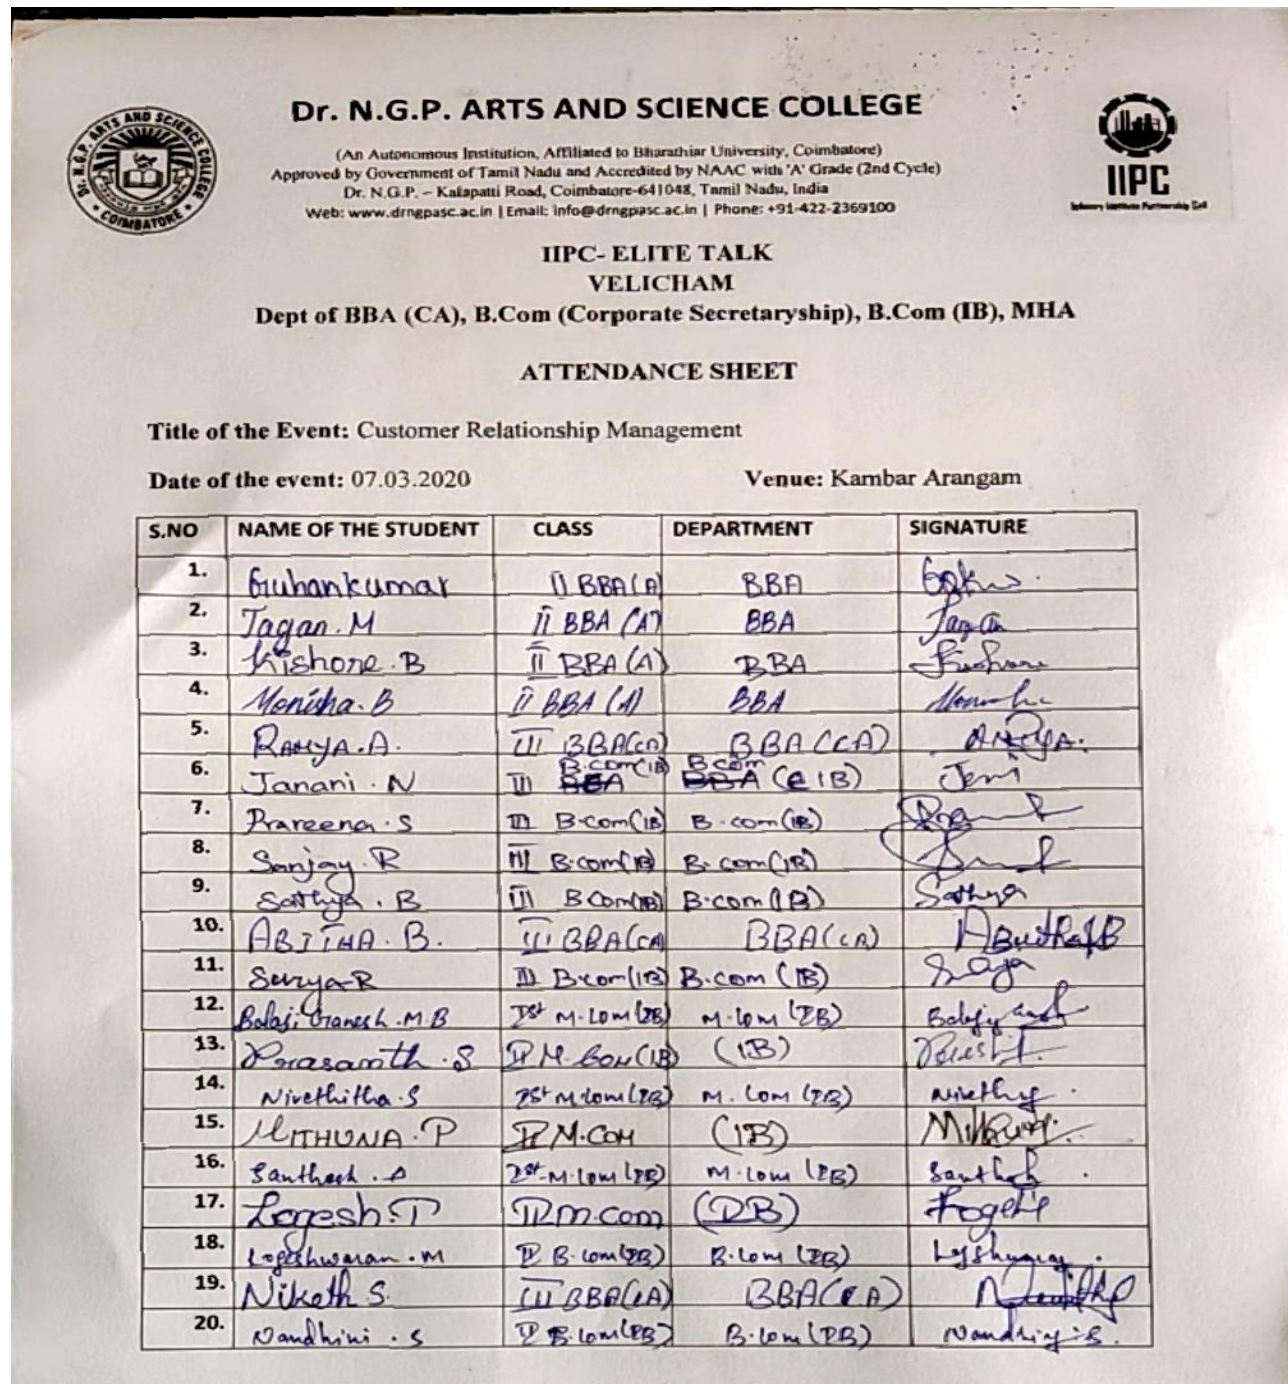 Dr. N.G.P. ARTS AND SCIENCE COLLEGE
(An Autonomous Institution, Affiliated to Bharathiar University, Coimbatore)
Approved by Government of Tamil Nadu and Accredited by NAAC with 'A' Grade (2nd Cycle)
Dr. N.G.P. – Kalapatti Road, Coimbatore-641048, Tamil Nadu, India
Web: www.drngpasc.ac.in | Email: info@drngpasc.ac.in | Phone: +91-422-2369100
Dr. N.G.P. ARTS AND SCIENCE COLLEGE
COIMBATORE
IIPC
Industry Institute Partnership Cell
IIPC- ELITE TALK
VELICHAM
Dept of BBA (CA), B.Com (Corporate Secretaryship), B.Com (IB), MHA
ATTENDANCE SHEET
Title of the Event: Customer Relationship Management
Date of the event: 07.03.2020 Venue: Kambar Arangam
S.NO NAME OF THE STUDENT CLASS DEPARTMENT SIGNATURE
1. Guhankumar II BBA (A) BBA
2. Jagan. M II BBA (A) BBA Jagan
3. Kishore. B II BBA (A) BBA Kishore
4. Monisha. B II BBA (A) BBA
5. RAMYA. A. III BBA(CA) BBA (CA)
6. Janani. N III B.com(IB) B.com (IB) Jeni
7. Praveena. S III B.com(IB) B.com(IB)
8. Sanjay. R III B.com(IB) B.com(IB)
9. Sathya. B III B.Com(IB) B.com(IB) Sathya
10. ABITHA. B. III BBA(CA) BBA(CA)
11. Surya-R III B.com(IB) B.com (IB)
12. Balaji Ganesh. M.B Ist M.Com (IB) M.Com (IB)
13. Prasanth. S II M.Com(IB) (IB)
14. Nivethitha. S Ist M.Com(IB) M.Com (IB)
15. MITHUNA. P II M.COM (IB)
16. Santhosh. S Ist M.Com (IB) M.Com (IB) Santhosh
17. Logesh. T II M.com (IB)
18. Logeshwaran. M II B.Com(IB) B.Com (IB)
19. Niketh S. III BBA(CA) BBA(CA)
20. Nandhini. S II B.Com(IB) B.Com (IB) Nandhini. S.